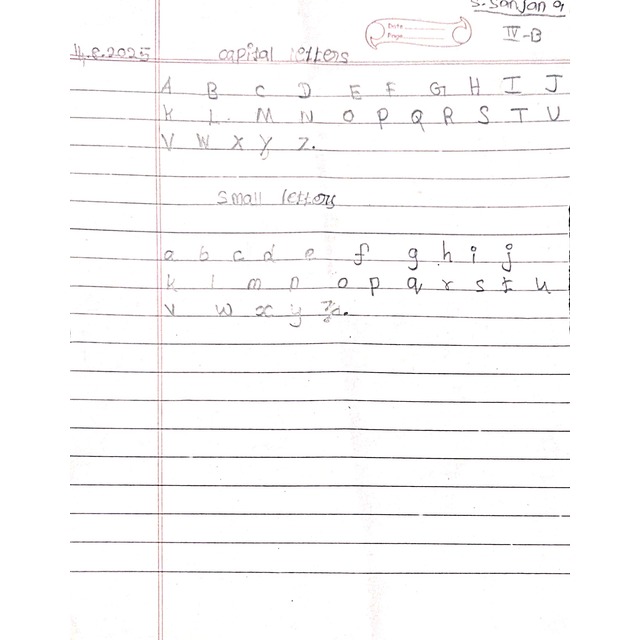 S. Sanjan a
Date
Page
IV-B
14.8.2025 capital letters
A B C D E F G H I J
K L M N O P Q R S T U
V W X Y Z.
small letters
a b c d e f g h i j
k l m n o p q r s t u
v w x y z.